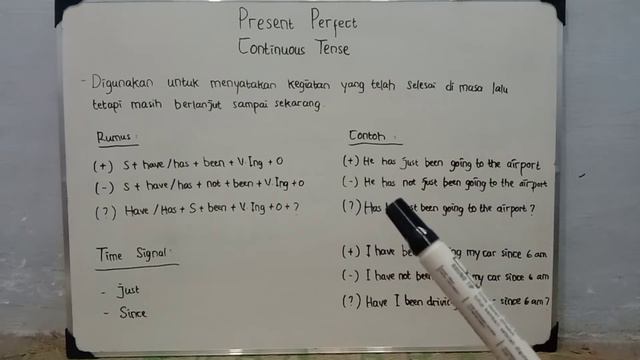 Present Perfect
Continuous Tense
- Digunakan untuk menyatakan kegiatan yang telah selesai di masa lalu
tetapi masih berlanjut sampai sekarang.
Rumus :
(+) S + have/has + been + V.Ing + O
(-) S + have/has + not + been + V.Ing + O
(?) Have/Has + S + been + V.Ing + O + ?
Time Signal :
- just
- Since
Contoh :
(+) He has just been going to the airport
(-) He has not just been going to the airport
(?) Has been going to the airport ?
(+) I have my car since 6 am
(-) I have not my car since 6 am
(?) Have I been since 6 am ?